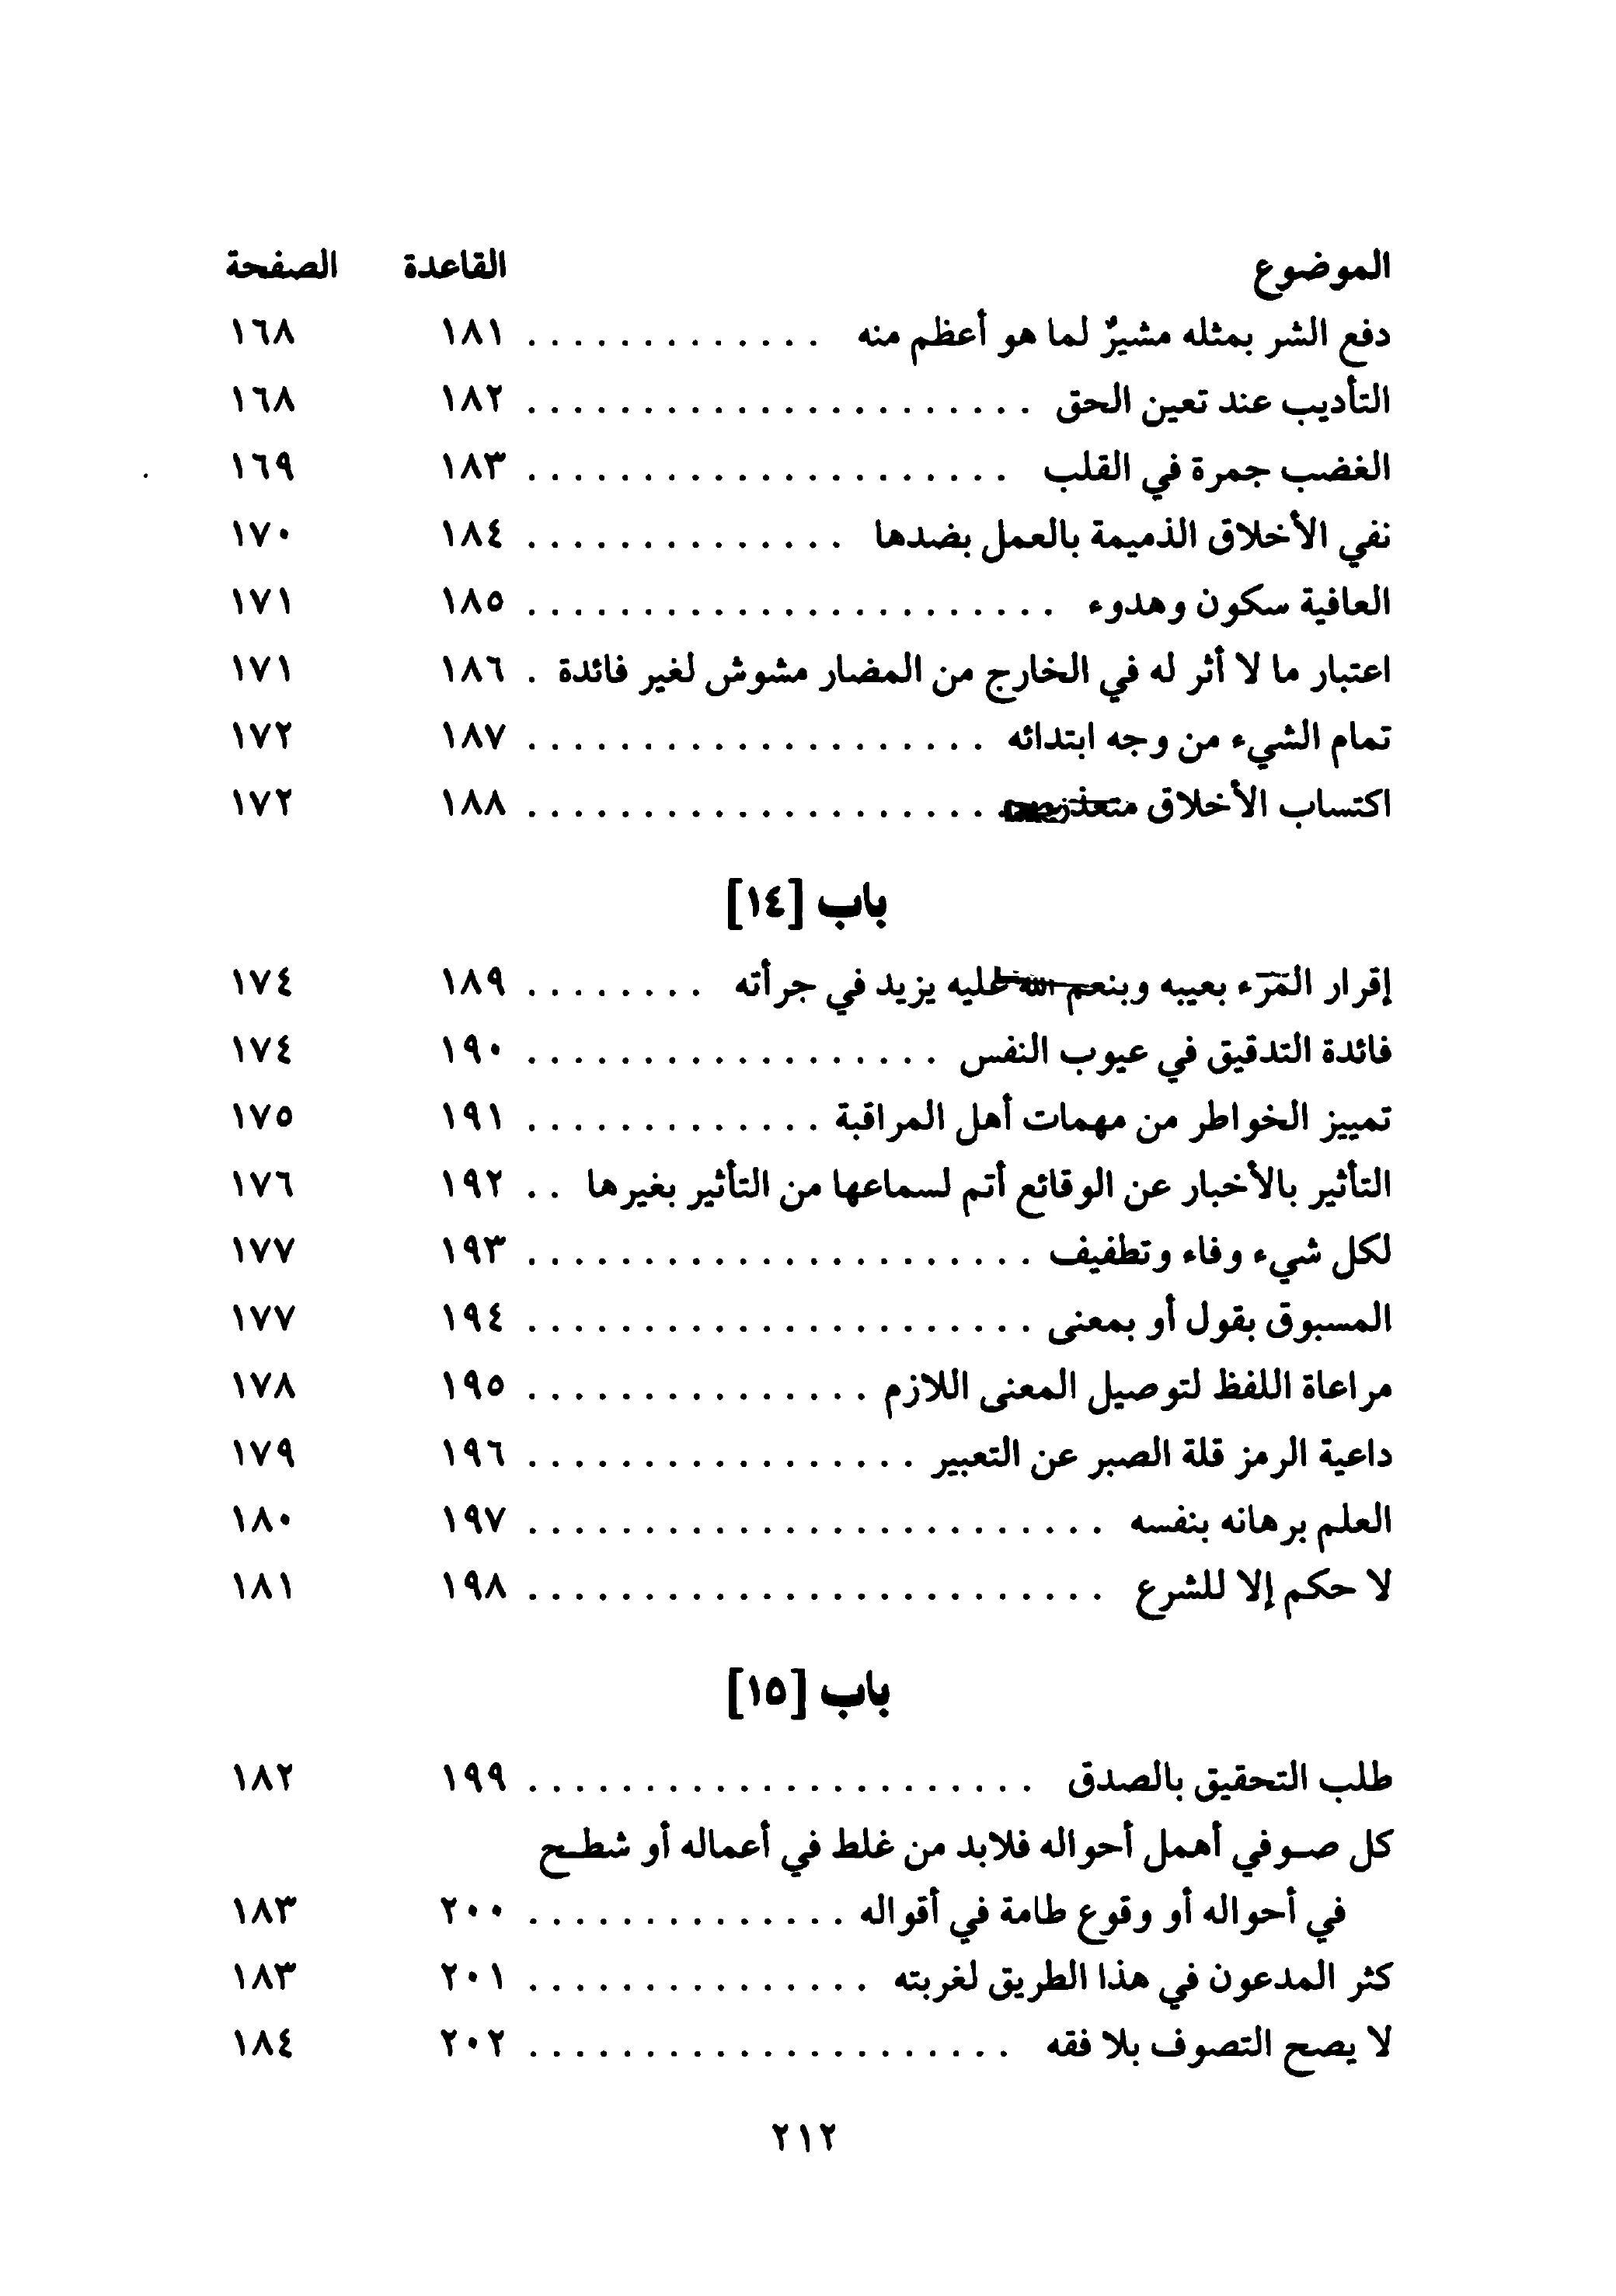 الموضوع القاعدة الصفحة
دفع الشر بمثله مشيرٌ لما هو أعظم منه . . . . . . . . . . . . . ١٨١ ١٦٨
التأديب عند تعين الحق . . . . . . . . . . . . . . . . . . . . . . ١٨٢ ١٦٨
الغضب جمرة في القلب . . . . . . . . . . . . . . . . . . . . . ١٨٣ ١٦٩
نفي الأخلاق الذميمة بالعمل بضدها . . . . . . . . . . . . . . ١٨٤ ١٧٠
العافية سكون وهدوء . . . . . . . . . . . . . . . . . . . . . . . ١٨٥ ١٧١
اعتبار ما لا أثر له في الخارج من المضار مشوش لغير فائدة . ١٨٦ ١٧١
تمام الشيء من وجه ابتدائه . . . . . . . . . . . . . . . . . . . . ١٨٧ ١٧٢
اكتساب الأخلاق . . . . . . . . . . . . . . . . . . . . ١٨٨ ١٧٢
باب [١٤]
إقرار المَرَء بعيبه وبنعم الله عليه يزيد في جرأته . . . . . . . . ١٨٩ ١٧٤
فائدة التدقيق في عيوب النفس . . . . . . . . . . . . . . . . . . ١٩٠ ١٧٤
تمييز الخواطر من مهمات أهل المراقبة . . . . . . . . . . . . . ١٩١ ١٧٥
التأثير بالأخبار عن الوقائع أتم لسماعها من التأثير بغيرها . . ١٩٢ ١٧٦
لكل شيء وفاء وتطفيف . . . . . . . . . . . . . . . . . . . . . . ١٩٣ ١٧٧
المسبوق بقول أو بمعنى . . . . . . . . . . . . . . . . . . . . . . ١٩٤ ١٧٧
مراعاة اللفظ لتوصيل المعنى اللازم . . . . . . . . . . . . . . . ١٩٥ ١٧٨
داعية الرمز قلة الصبر عن التعبير . . . . . . . . . . . . . . . . . ١٩٦ ١٧٩
العلم برهانه بنفسه . . . . . . . . . . . . . . . . . . . . . . . . . ١٩٧ ١٨٠
لا حكم إلا للشرع . . . . . . . . . . . . . . . . . . . . . . . . . ١٩٨ ١٨١
باب [١٥]
طلب التحقيق بالصدق . . . . . . . . . . . . . . . . . . . . . . ١٩٩ ١٨٢
كل صـوفي أهمل أحواله فلابد من غلط في أعماله أو شطـح
في أحواله أو وقوع طامة في أقواله . . . . . . . . . . . . . . ٢٠٠ ١٨٣
كثر المدعون في هذا الطريق لغربته . . . . . . . . . . . . . . . ٢٠١ ١٨٣
لا يصح التصوف بلا فقه . . . . . . . . . . . . . . . . . . . . . ٢٠٢ ١٨٤
٢١٢